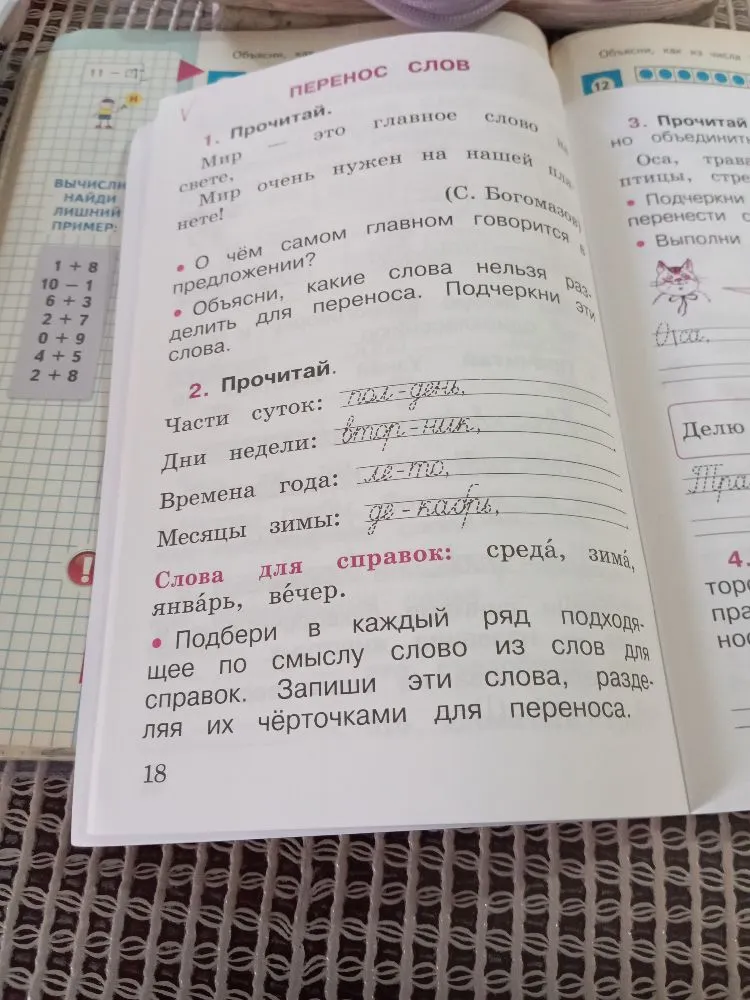 ПЕРЕНОС СЛОВ
1. Прочитай.
Мир — это главное слово на
свете,
Мир очень нужен на нашей пла-
нете!
(С. Богомазов)
• О чём самом главном говорится в
предложении?
• Объясни, какие слова нельзя раз-
делить для переноса. Подчеркни эти
слова.
2. Прочитай.
Части суток: пол-день,
Дни недели: втор-ник,
Времена года: ле-то,
Месяцы зимы: де-кабрь,
Слова для справок: среда́, зима́,
янва́рь, ве́чер.
• Подбери в каждый ряд подходя-
щее по смыслу слово из слов для
справок. Запиши эти слова, разде-
ляя их чёрточками для переноса.
18
Объясни, как
11 –
ВЫЧИСЛИ
НАЙДИ
ЛИШНИЙ
ПРИМЕР:
1 + 8
10 – 1
6 + 3
2 + 7
0 + 9
4 + 5
2 + 8
!
Объясни, как из числа
12
3. Прочитай
но объединить
Оса, трава
птицы, стре
• Подчеркни
перенести с
• Выполни
Оса,
Делю
Тра
4.
торо
пра
нос